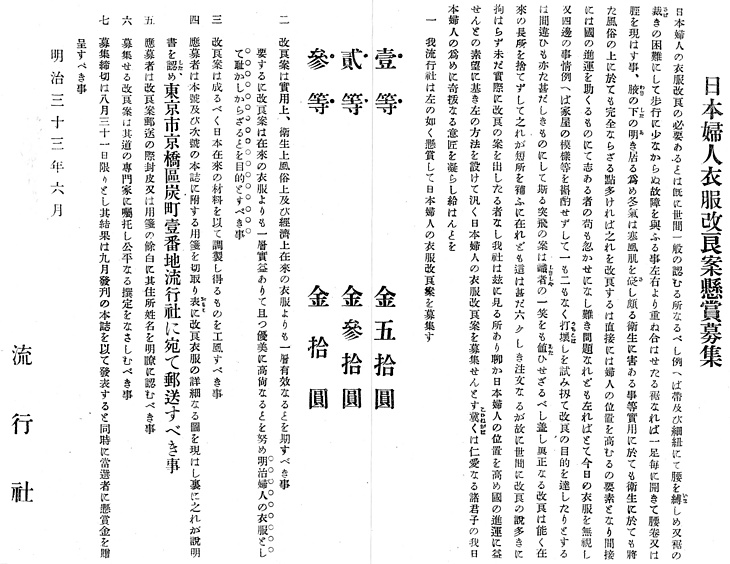 日本婦人衣服改良案懸賞募集
日本婦人の衣服改良の必要あるとは既に世間一般の認むる所なるべし例へば帶及び細紐にて腰を縛しめ又裾の
裁きの困難にして歩行に少なからぬ故障を與ふる事左右より重ね合はせたる裾なれば一足毎に開きて腰卷又は
脛を現はす事、腋の下の明き居る爲め冬氣は寒風肌を侵し頗る衛生に害ある事等實用に於ても衛生に於ても將
た風俗の上に於ても完全ならざる點多ければ之を改良するは直接には婦人の位置を高むるの要素となり間接
には國の進運を助くるものにて志ある者の苟も忽かせになし難き問題なれども左ればとて今日の衣服を無視し
又四邊の事情例へば家屋の模樣等を斟酌せずして一も二もなく打壞しを試み扨て改良の目的を達したりとする
は間違ひも亦た甚だしきものにして斯る突飛の案は識者の一笑をも値ひせざるべし盖し眞正なる改良は能く在
來の長所を捨てずして之れが短所を補ふに在れども這は甚だ六ヶしき注文なるが故に世間に改良の說多きに
拘はらず未だ實際に改良の案を出したる者なし我社は玆に見る所あり聊か日本婦人の位置を高め國の進運に益
せんとの素望に基き左の方法を設けて汎く日本婦人の衣服改良案を募集せんとす冀くは仁愛なる諸君子の我日
本婦人の爲めに奇拔なる意匠を凝らし給はんとを
一 我流行社は左の如く懸賞して日本婦人の衣服改良案を募集す
壹等 金五拾圓
貳等 金參拾圓
參等 金拾圓
二 改良案は實用上、衛生上風俗上及び經濟上在來の衣服よりも一層有效なるとを期すべき事
要するに改良案は在來の衣服よりも一層實益ありて且つ優美に高尙なるとを努め明治婦人の衣服とし
て耻かしからざるとを目的とすべき事
三 改良案は成るべく日本在來の材料を以て調製し得るものを工風すべき事
四 應募者は本號及び次號の本誌に附する用箋を切取り表に改良衣服の詳細なる圖を現はし裏に之れが說明
書を認め東京市京橋區炭町壹番地流行社に宛て郵送すべき事
五 應募者は改良案郵送の際封皮又は用箋の餘白に其住所姓名を明瞭に認むべき事
六 募集せる改良案は其道の專門家に囑托し公平なる撰定をなさしむべき事
七 募集締切は八月三十一日限りとし其結果は九月發刋の本誌を以て發表すると同時に當選者に懸賞金を贈
呈すべき事
明治三十三年六月
流行社